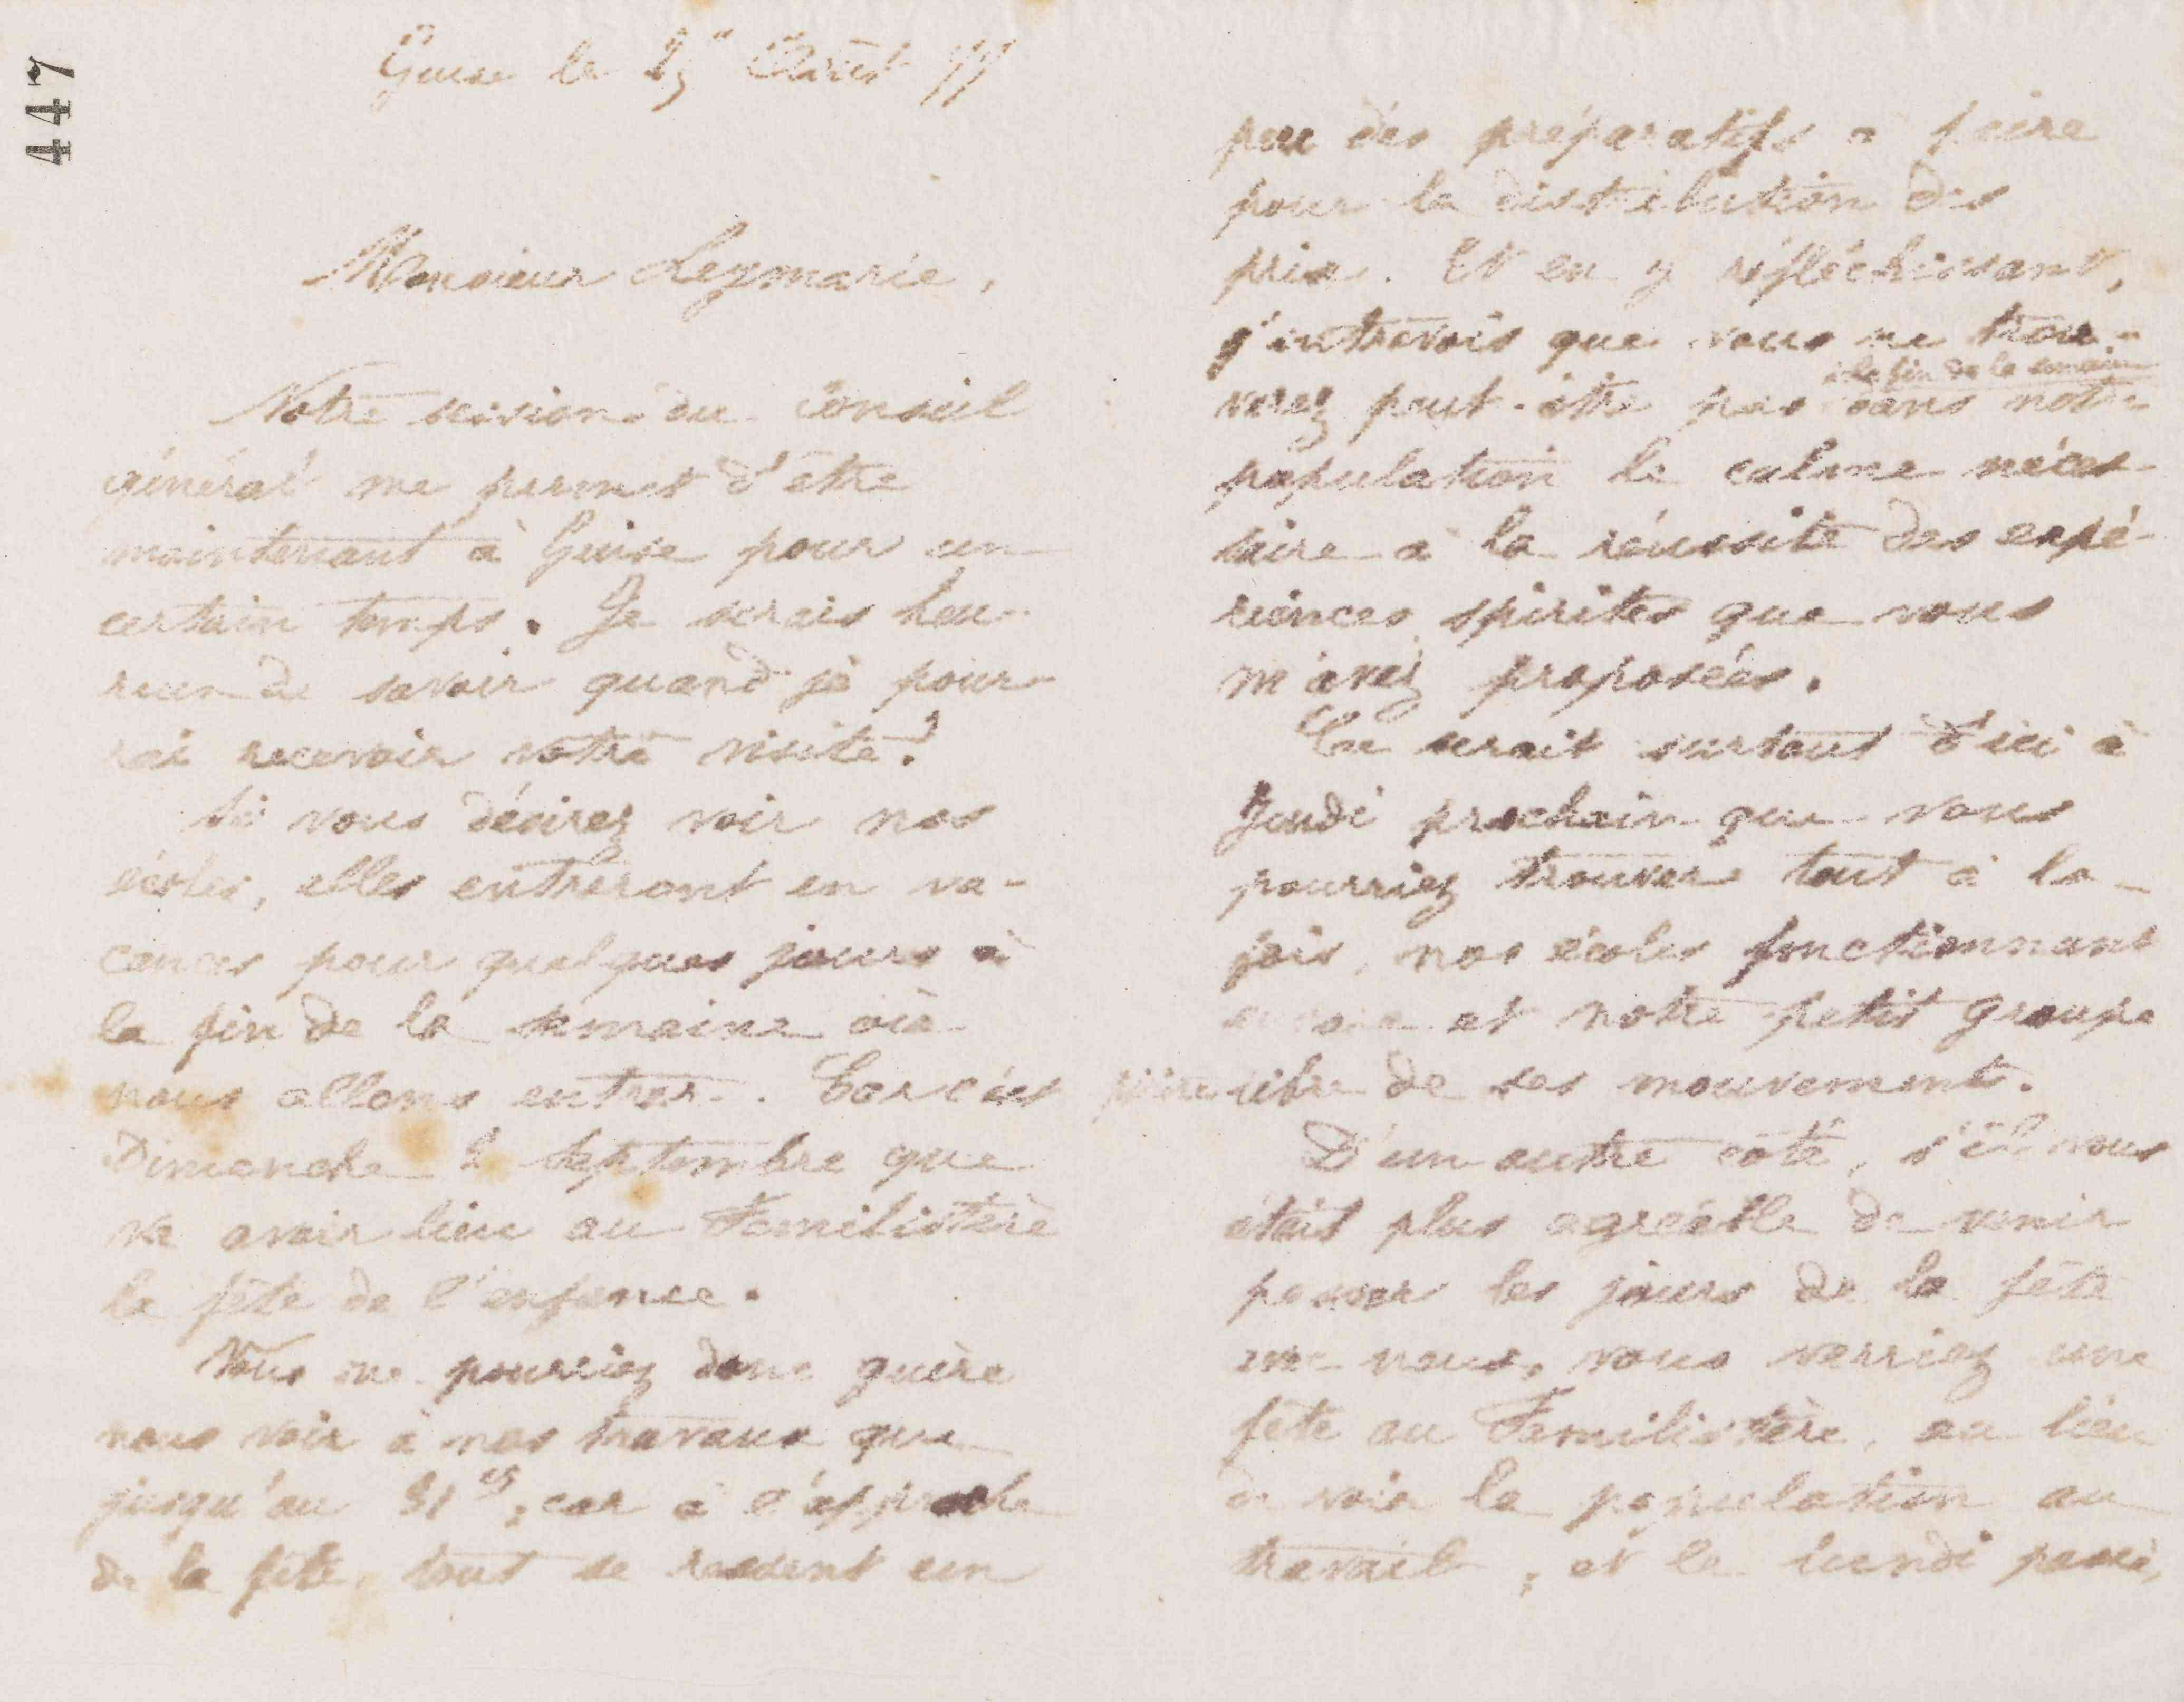 447
Guise le 25 Août 77
Monsieur Leymarie,
Notre session du Conseil
général me permet d'être
maintenant à Guise pour un
certain temps. Je serais heu-
reux de savoir quand je pour-
rai recevoir votre visite?
Si vous désirez voir nos
écoles, elles entreront en va-
cances pour quelques jours à
la fin de la semaine où
nous allons entrer. Car c'est
Dimanche 2 Septembre que
va avoir lieu au Familistère
la fête de l'enfance.
Vous ne pourriez donc guère
nous voir à nos travaux que
jusqu'au 31, car à l'approche
de la fête, tout se ressent un
peu des préparatifs à faire
pour la distribution des
prix. Et en y réfléchissant,
j'entrevois que vous ne trou-
à la fin de la semaine
verez peut-être pas dans notre
population le calme néces-
saire à la réussite des expé-
riences spirites que vous
m'avez proposées.
Ce serait surtout d'ici à
Jeudi prochain que vous
pourriez trouver tout à la
fois, nos écoles fonctionnant
et notre petit groupe
libre de ses mouvements.
D'un autre côté, s'il vous
était plus agréable de venir
passer les jours de la fête
avec nous, vous verriez une
fête au Familistère, au lieu
de voir la population au
travail, et le lundi passé,